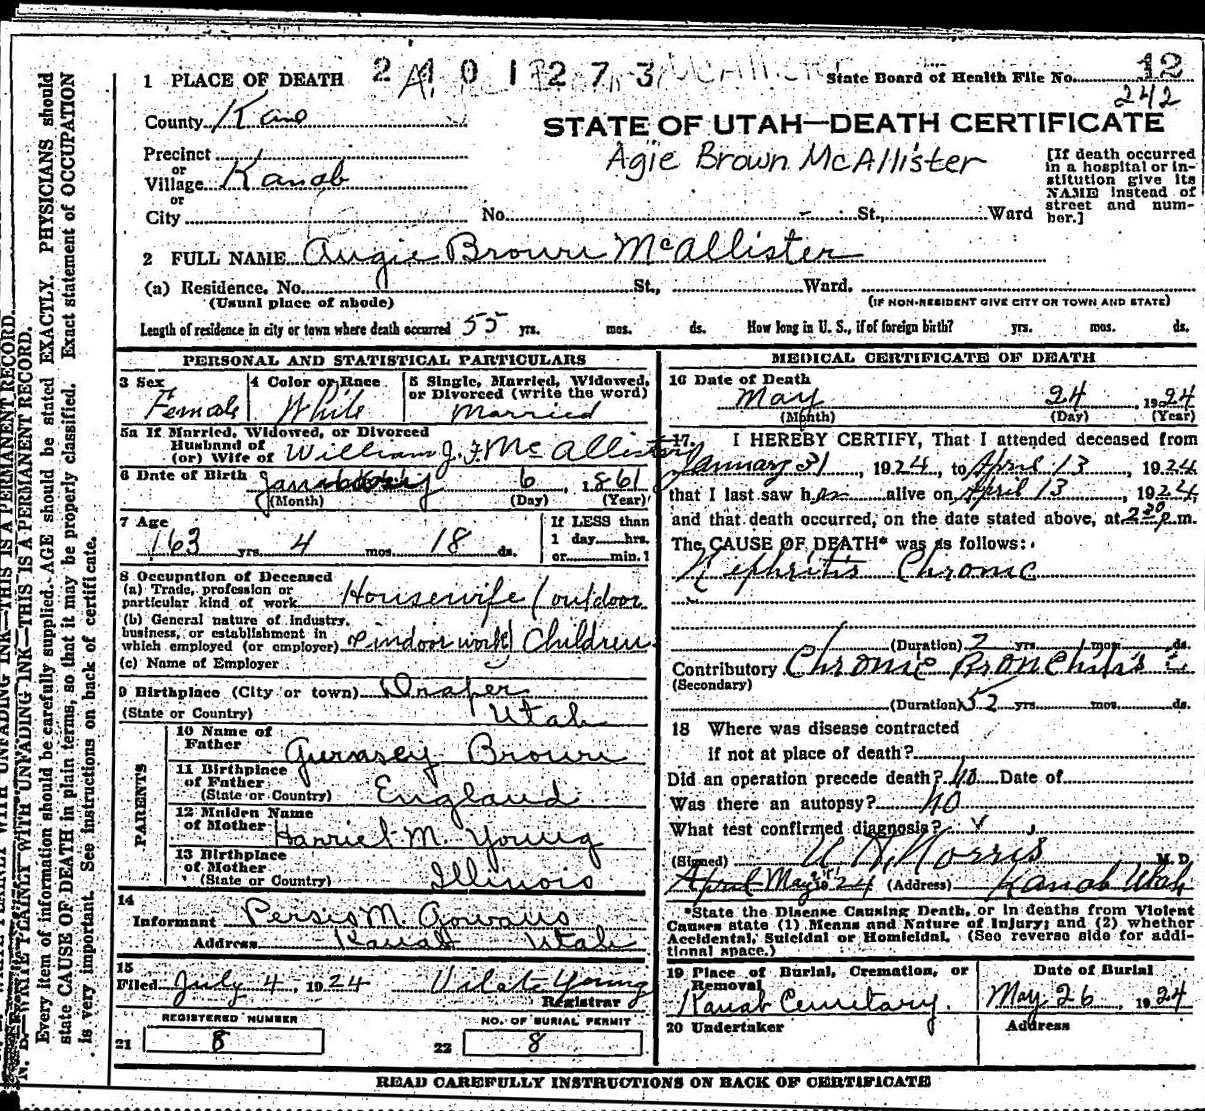 1 PLACE OF DEATH 2401273 McAllister State Board of Health File No. 12
242
County Kane
STATE OF UTAH—DEATH CERTIFICATE
Precinct
or
Village Kanab
or
City No. St., Ward
Agie Brown McAllister
[If death occurred in a hospital or institution give its NAME instead of street and number.]
2 FULL NAME Augie Brown McAllister
(a) Residence. No. St., Ward.
(Usual place of abode) (IF NON-RESIDENT GIVE CITY OR TOWN AND STATE)
Length of residence in city or town where death occurred 55 yrs. mos. ds. How long in U. S., if of foreign birth? yrs. mos. ds.
PERSONAL AND STATISTICAL PARTICULARS
3 Sex
Female
4 Color or Race
White
5 Single, Married, Widowed, or Divorced (write the word)
Married
5a If Married, Widowed, or Divorced
Husband of
(or) Wife of William J. F. McAllister
6 Date of Birth January 6, 1861
(Month) (Day) (Year)
7 Age
63 yrs. 4 mos. 18 ds.
If LESS than
1 day hrs.
or min.
8 Occupation of Deceased
(a) Trade, profession or particular kind of work Housewife (outdoor
(b) General nature of industry, business, or establishment in which employed (or employer) & indoor work) Children
(c) Name of Employer
9 Birthplace (City or town) Draper
(State or Country) Utah
PARENTS
10 Name of Father Guernsey Brown
11 Birthplace of Father (State or Country) England
12 Maiden Name of Mother Harriet M. Young
13 Birthplace of Mother (State or Country) Illinois
14
Informant Persis M. Gowans
Address Kanab Utah
15
Filed July 4, 1924 Vilate Young
Registrar
REGISTERED NUMBER
21 8
NO. OF BURIAL PERMIT
22 8
MEDICAL CERTIFICATE OF DEATH
16 Date of Death
May 24, 1924
(Month) (Day) (Year)
17. I HEREBY CERTIFY, That I attended deceased from
January 31, 1924, to April 13, 1924
that I last saw her alive on April 13, 1924,
and that death occurred, on the date stated above, at 2 30 p.m.
The CAUSE OF DEATH* was as follows:
Nephritis Chronic
(Duration) 2 yrs. mos. ds.
Contributory Chronic Bronchitis
(Secondary)
(Duration) 52 yrs. mos. ds.
18 Where was disease contracted
if not at place of death?
Did an operation precede death? no Date of
Was there an autopsy? no
What test confirmed diagnosis?
(Signed) Norris M. D.
April May 24 (Address) Kanab Utah
*State the Disease Causing Death, or in deaths from Violent
Causes state (1) Means and Nature of Injury; and (2) whether
Accidental, Suicidal or Homicidal. (See reverse side for additional space.)
19 Place of Burial, Cremation, or Removal
Kanab Cemetary.
Date of Burial
May 26 1924
20 Undertaker
Address
READ CAREFULLY INSTRUCTIONS ON BACK OF CERTIFICATE
N. B.—WRITE PLAINLY WITH UNFADING INK—THIS IS A PERMANENT RECORD.
Every item of information should be carefully supplied. AGE should be stated EXACTLY. PHYSICIANS should
state CAUSE OF DEATH in plain terms, so that it may be properly classified. Exact statement of OCCUPATION
is very important. See instructions on back of certificate.